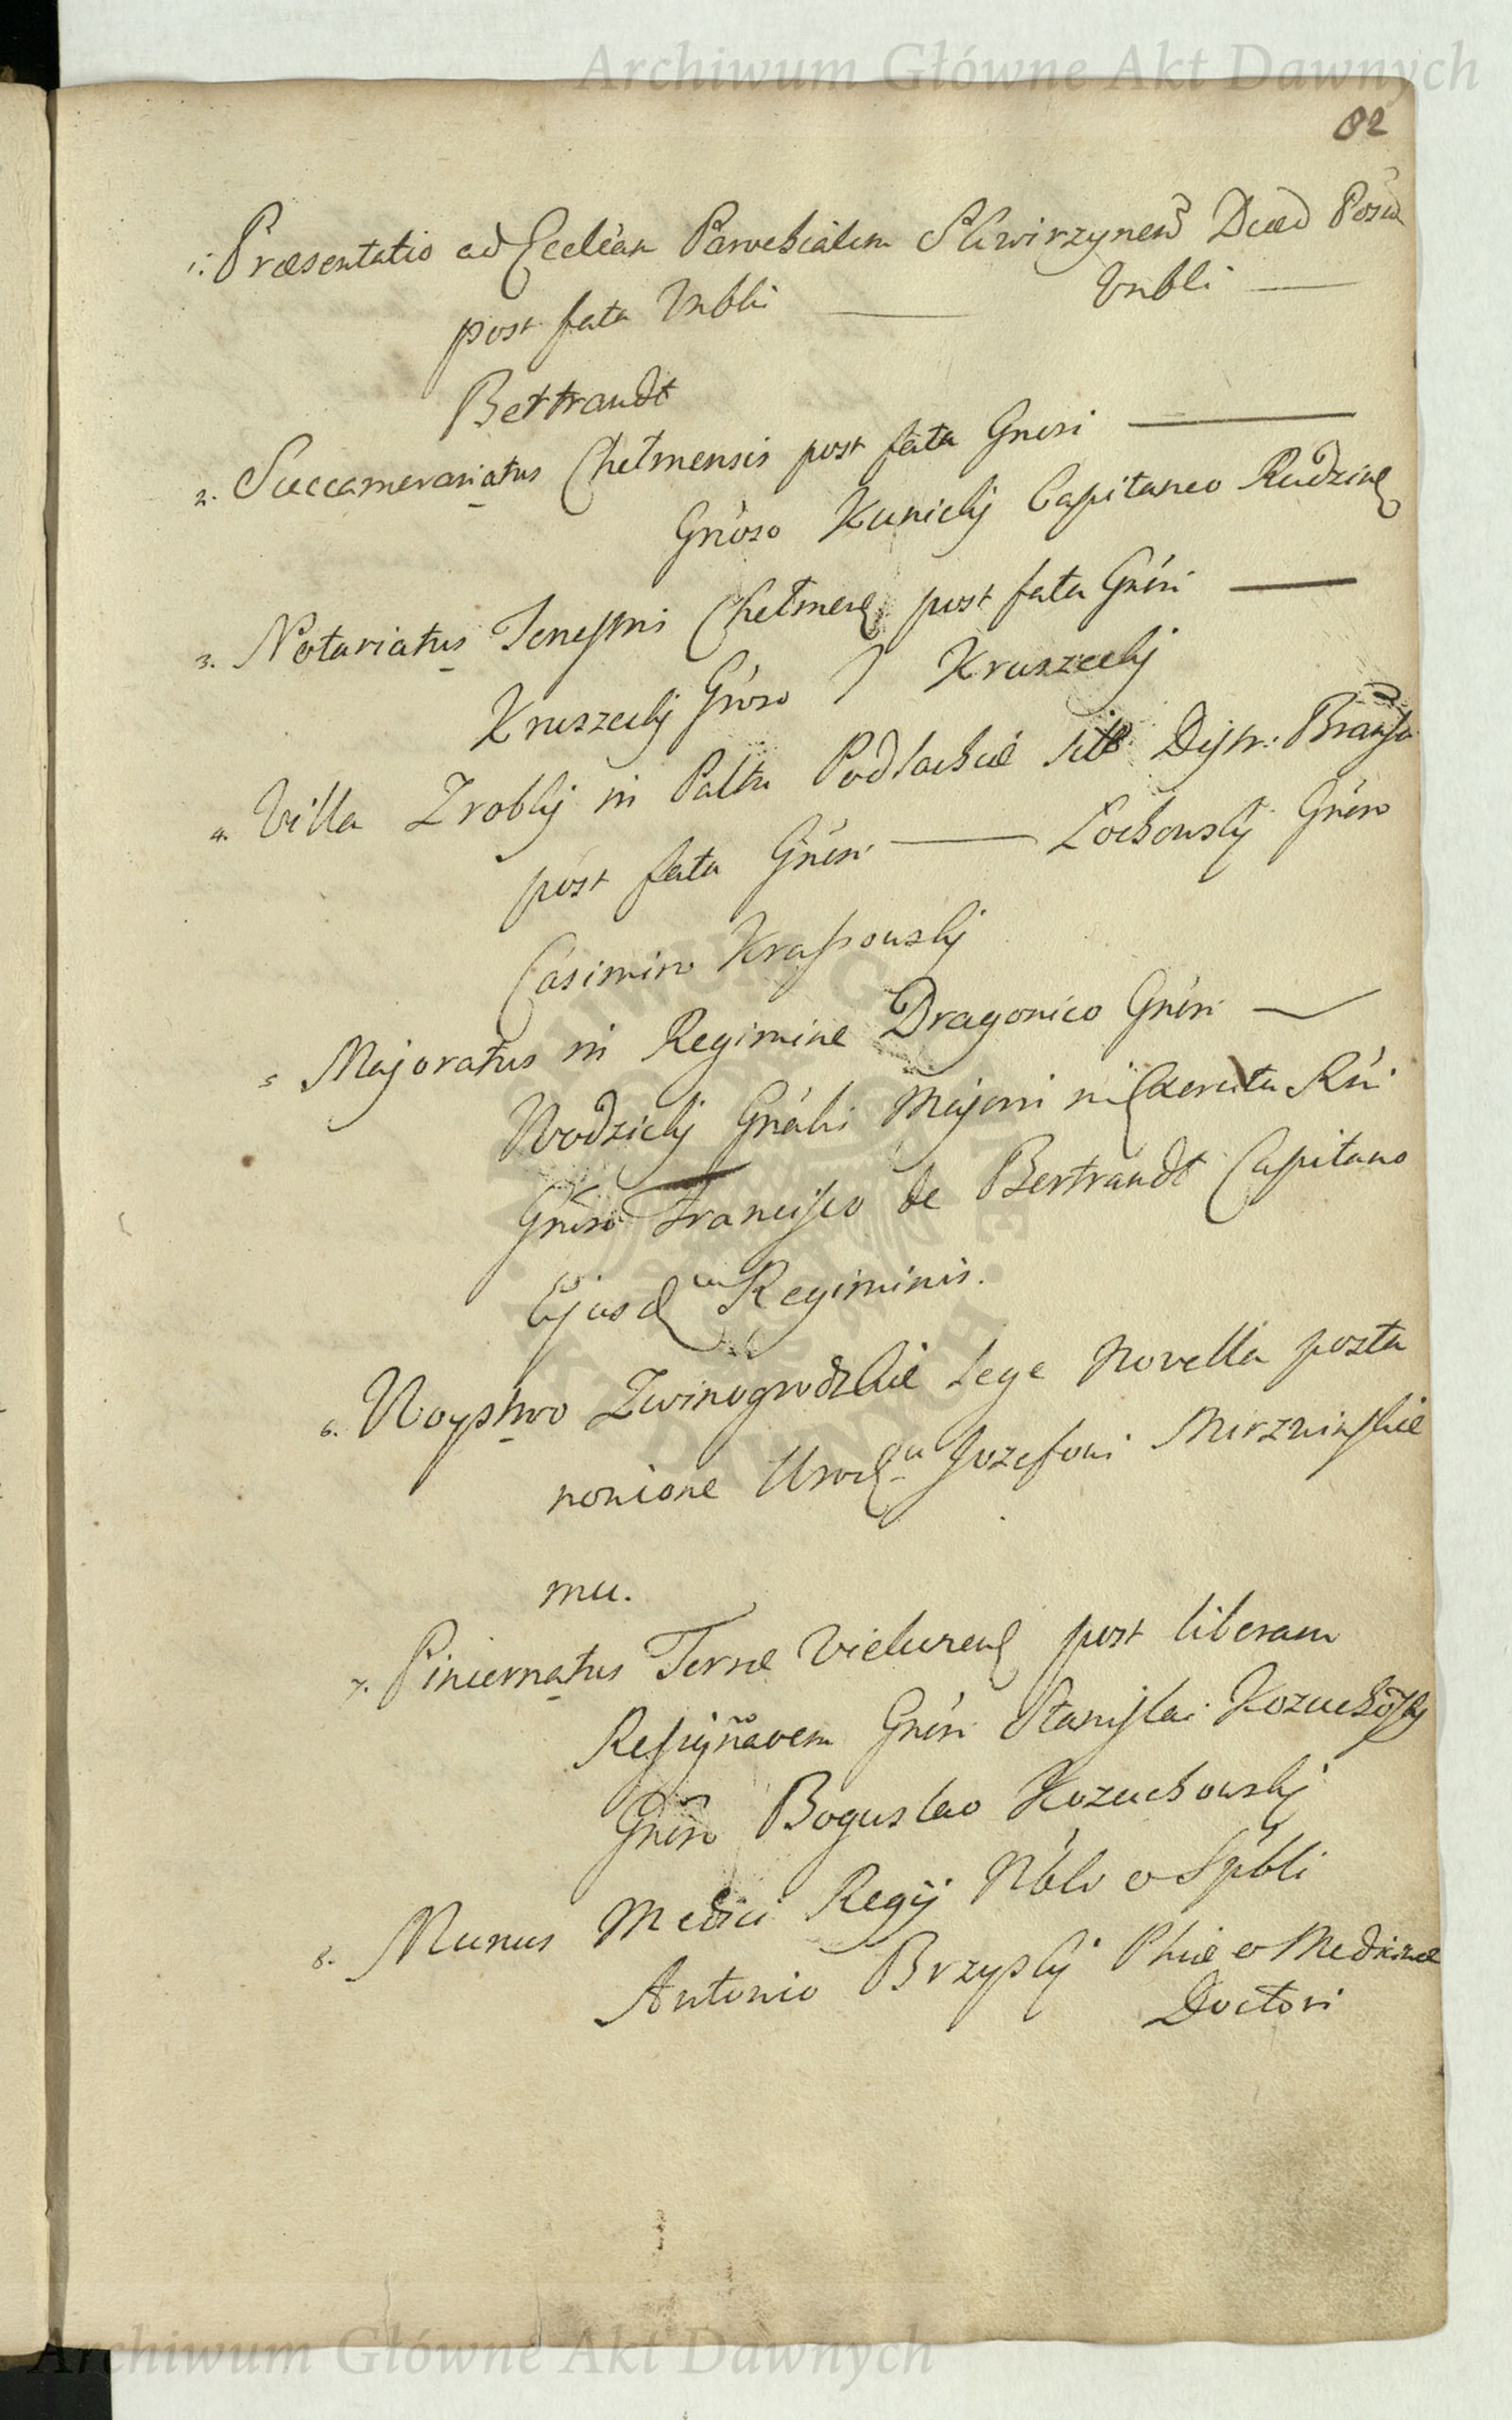 Archiwum Główne Akt Dawnych
82
1. Præsentatio ad Eccleān Parochialem Skwirzynen Diæc Posn
post fata Vnbli Vnbli
Bertrandt
2. Succamerariatus Chełmensis post fata Gnosi
Gnoso Kunicki Capitaneo Rudzin
3. Notariatus Chełmen post fata Gnēsi
Kruszecki Gnoso J Kruszecki
4. Villa Zrobki in Paltu Podlachiæ Distr. Brańs
post fata Gnēsi Łochowski Gnēso
Casimiro Krassowski
5 Majoratus in Regimine Dragonico Gnēsi
Wodzicki Gnālis Majori in Exercitu Rni
Gnēso Francisco de Bertrandt Capitano
Ejusdem Regiminis.
6. Woystwo Zwinogrodzkie Lege Novella posta
nonione Urodzu Jozefowi Mirzwinskie
mu.
7. Pincernatus Terræ Vielunen post liberam
Resignāoem Gnēsi Stanislai Kozuchowski
Gnēso Boguslao Kozuchowski
8. Munus Medici Regij Nbli et Spbli
Antonio Brzyski Phiæ et Medicinæ
Doctori
Archiwum Główne Akt Dawnych